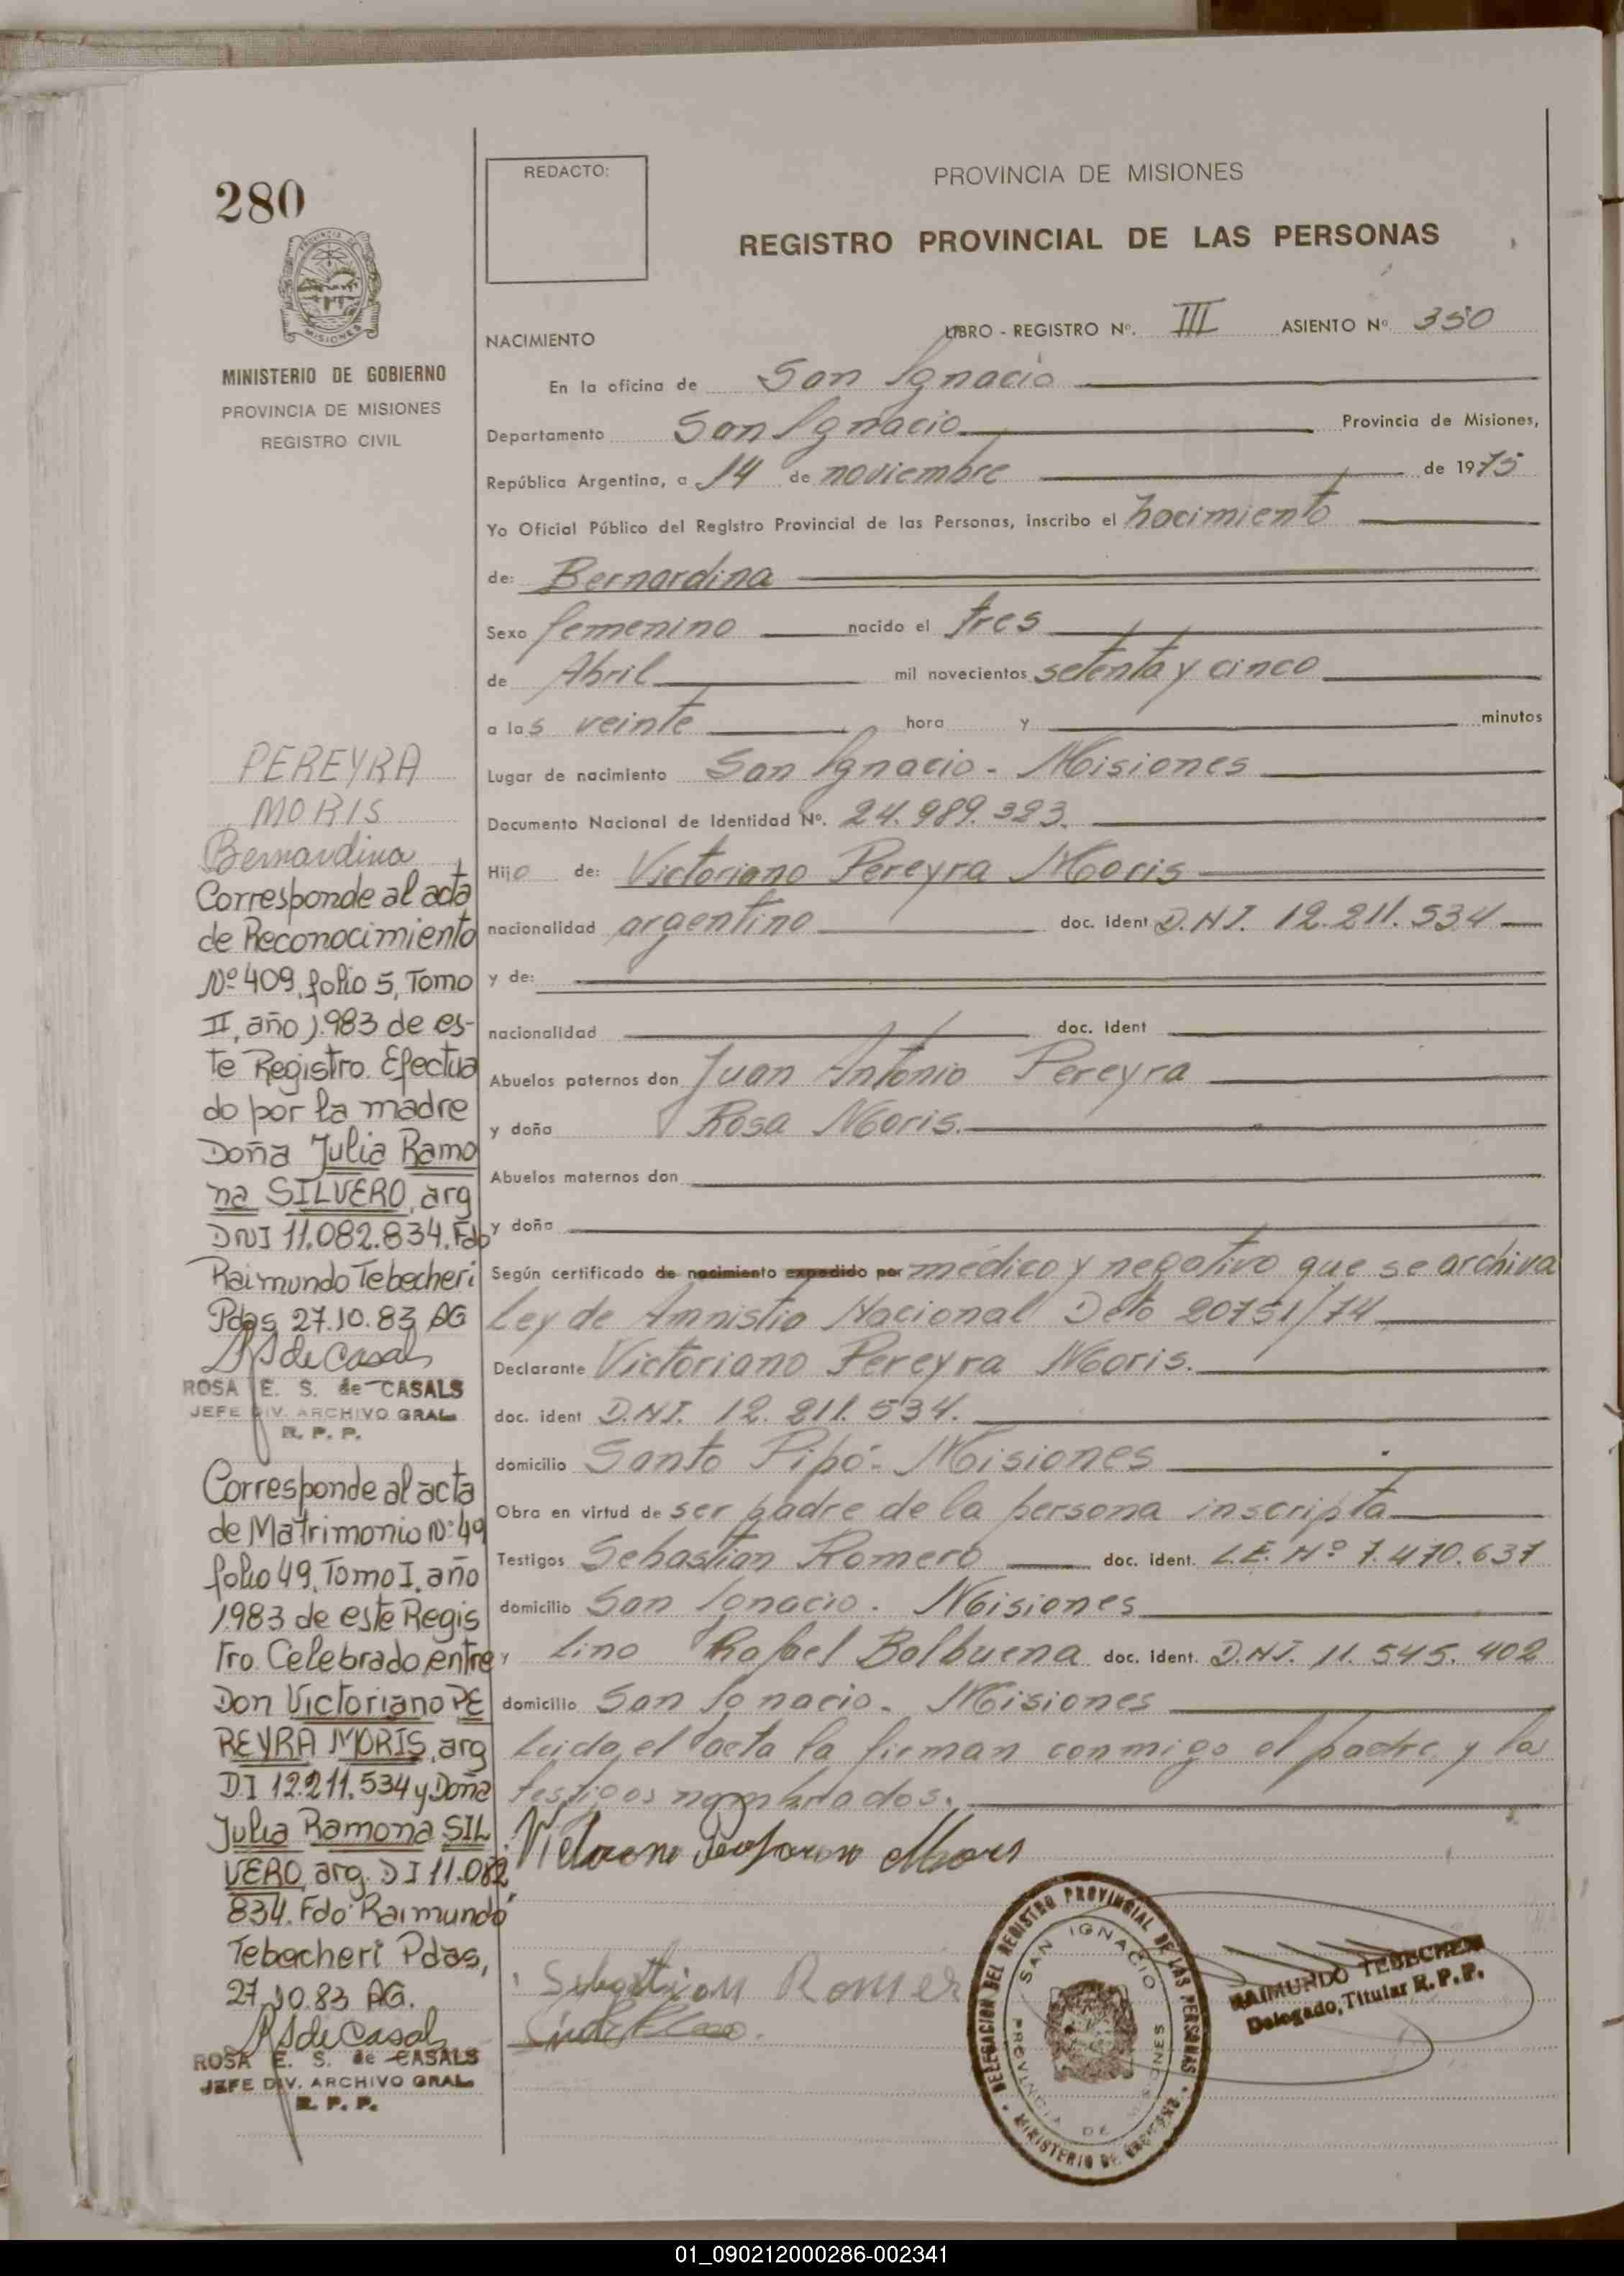 280
REDACTO:
PROVINCIA DE MISIONES
REGISTRO PROVINCIAL DE LAS PERSONAS
MINISTERIO DE GOBIERNO
PROVINCIA DE MISIONES
REGISTRO CIVIL
NACIMIENTO
LIBRO - REGISTRO Nº. III ASIENTO Nº 350
En la oficina de San Ignacio
Departamento San Ignacio Provincia de Misiones,
República Argentina, a 14 de noviembre de 1975
Yo Oficial Público del Registro Provincial de las Personas, inscribo el nacimiento
de: Bernardina
Sexo femenino nacido el tres
de Abril mil novecientos setenta y cinco
a las veinte hora y minutos
Lugar de nacimiento San Ignacio - Misiones
Documento Nacional de Identidad Nº. 24.989.323.
Hijo de: Victoriano Pereyra Moris
nacionalidad argentino doc. ident D.N.I. 12.211.534
y de:
nacionalidad doc. ident
Abuelos paternos don Juan Antonio Pereyra
y doña Rosa Moris.
Abuelos maternos don
y doña
Según certificado de nacimiento expedido por médico y negativo que se archiva
Ley de Amnistia Nacional Dcto 20751/74
Declarante Victoriano Pereyra Moris.
doc. ident D.N.I. 12.211.534.
domicilio Santo Pipó - Misiones
Obra en virtud de ser padre de la persona inscripta
Testigos Sebastian Romero doc. ident. L.E. Nº 7.470.637
domicilio San Ignacio. Misiones
y Lino Rafael Balbuena doc. ident. D.N.I. 11.545.402
domicilio San Ignacio. Misiones
Leida el acta la firman conmigo el padre y los
testigos nombrados.
Sebastian Romer
DELEGACION DEL REGISTRO PROVINCIAL DE LAS PERSONAS
SAN IGNACIO
PROVINCIA DE MISIONES
MINISTERIO DE GOBIERNO
RAIMUNDO TEBECHERI
Delegado, Titular R.P.P.
PEREYRA
MORIS
Bernardina
Corresponde al acta
de Reconocimiento
Nº 409, folio 5, Tomo
II, año 1.983 de es-
te Registro. Efectua
do por la madre
Doña Julia Ramo
na SILVERO, arg
DNI 11.082.834. Fdo
Raimundo Tebecheri
Pdas 27.10.83 AG
RSdeCasals
ROSA E. S. de CASALS
JEFE DIV. ARCHIVO GRAL.
R. P. P.
Corresponde al acta
de Matrimonio Nº 49
folio 49, Tomo I, año
1.983 de este Regis
tro. Celebrado entre
Don Victoriano PE
REYRA MORIS, arg
D.I 12.211.534 y Doña
Julia Ramona SIL
VERO, arg. DI 11.082
834. Fdo Raimundo
Tebecheri Pdas,
27.10.83 AG.
RSdeCasals
ROSA E. S. de CASALS
JEFE DIV. ARCHIVO GRAL.
R. P. P.
01_090212000286-002341